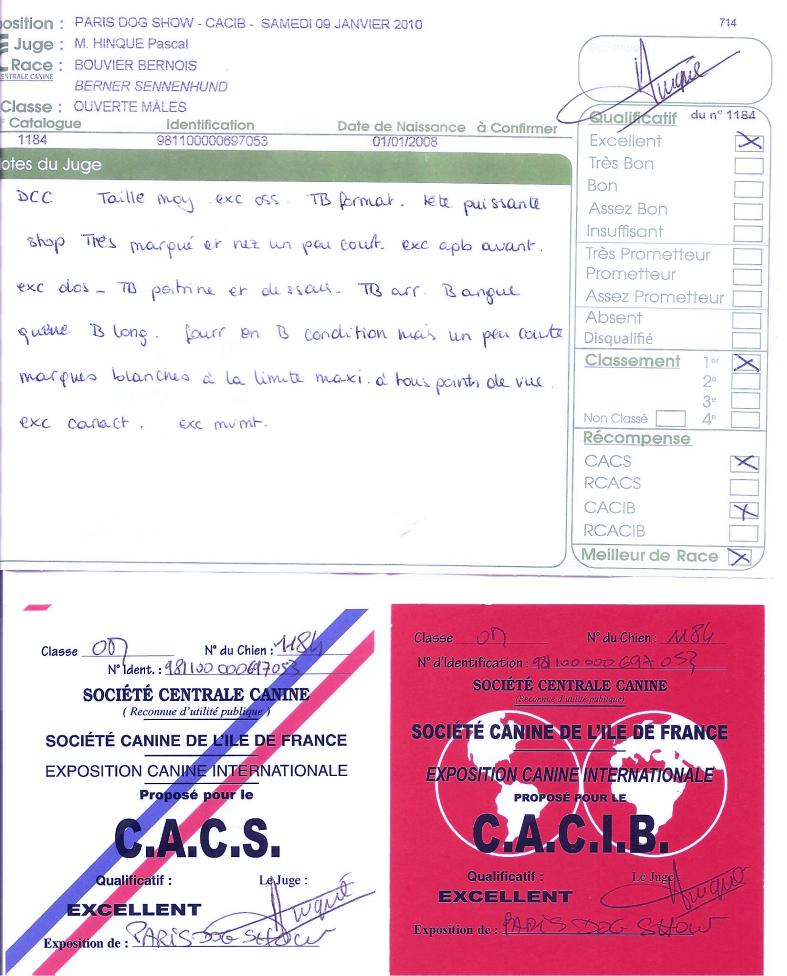 position : PARIS DOG SHOW - CACIB - SAMEDI 09 JANVIER 2010
714
Juge : M. HINQUE Pascal
Race : BOUVIER BERNOIS
CENTRALE CANINE
BERNER SENNENHUND
Classe : OUVERTE MÂLES
Catalogue Identification Date de Naissance à Confirmer
1184 981100000697053 01/01/2008
otes du Juge
DCC Taille moy. exc oss. TB format. tête puissante
stop Très marqué et nez un peu court. exc apb avant.
exc dos - TB poitrine et dessous. TB arr. B angue
queue B long. fourr en B condition mais un peu courte
marques blanches à la limite maxi. à tous points de vue.
exc caract. exc mvmt.
Hinque
Qualificatif du n° 1184
Excellent
Très Bon
Bon
Assez Bon
Insuffisant
Très Prometteur
Prometteur
Assez Prometteur
Absent
Disqualifié
Classement 1er
2e
3e
Non Classé 4e
Récompense
CACS
RCACS
CACIB
RCACIB
Meilleur de Race
Classe OM N° du Chien : 1184
N° Ident. : 981100 000697053
SOCIÉTÉ CENTRALE CANINE
( Reconnue d'utilité publique )
SOCIÉTÉ CANINE DE L'ILE DE FRANCE
EXPOSITION CANINE INTERNATIONALE
Proposé pour le
C.A.C.S.
Qualificatif : Le Juge :
EXCELLENT Hinque
Exposition de : PARIS DOG SHOW
Classe OM N° du Chien : 1184
N° d'Identification : 981100 000 697 053
SOCIÉTÉ CENTRALE CANINE
(Reconnue d'utilité publique)
SOCIÉTÉ CANINE DE L'ILE DE FRANCE
EXPOSITION CANINE INTERNATIONALE
PROPOSÉ POUR LE
C.A.C.I.B.
Qualificatif : Le Juge :
EXCELLENT Hinque
Exposition de : PARIS DOG SHOW